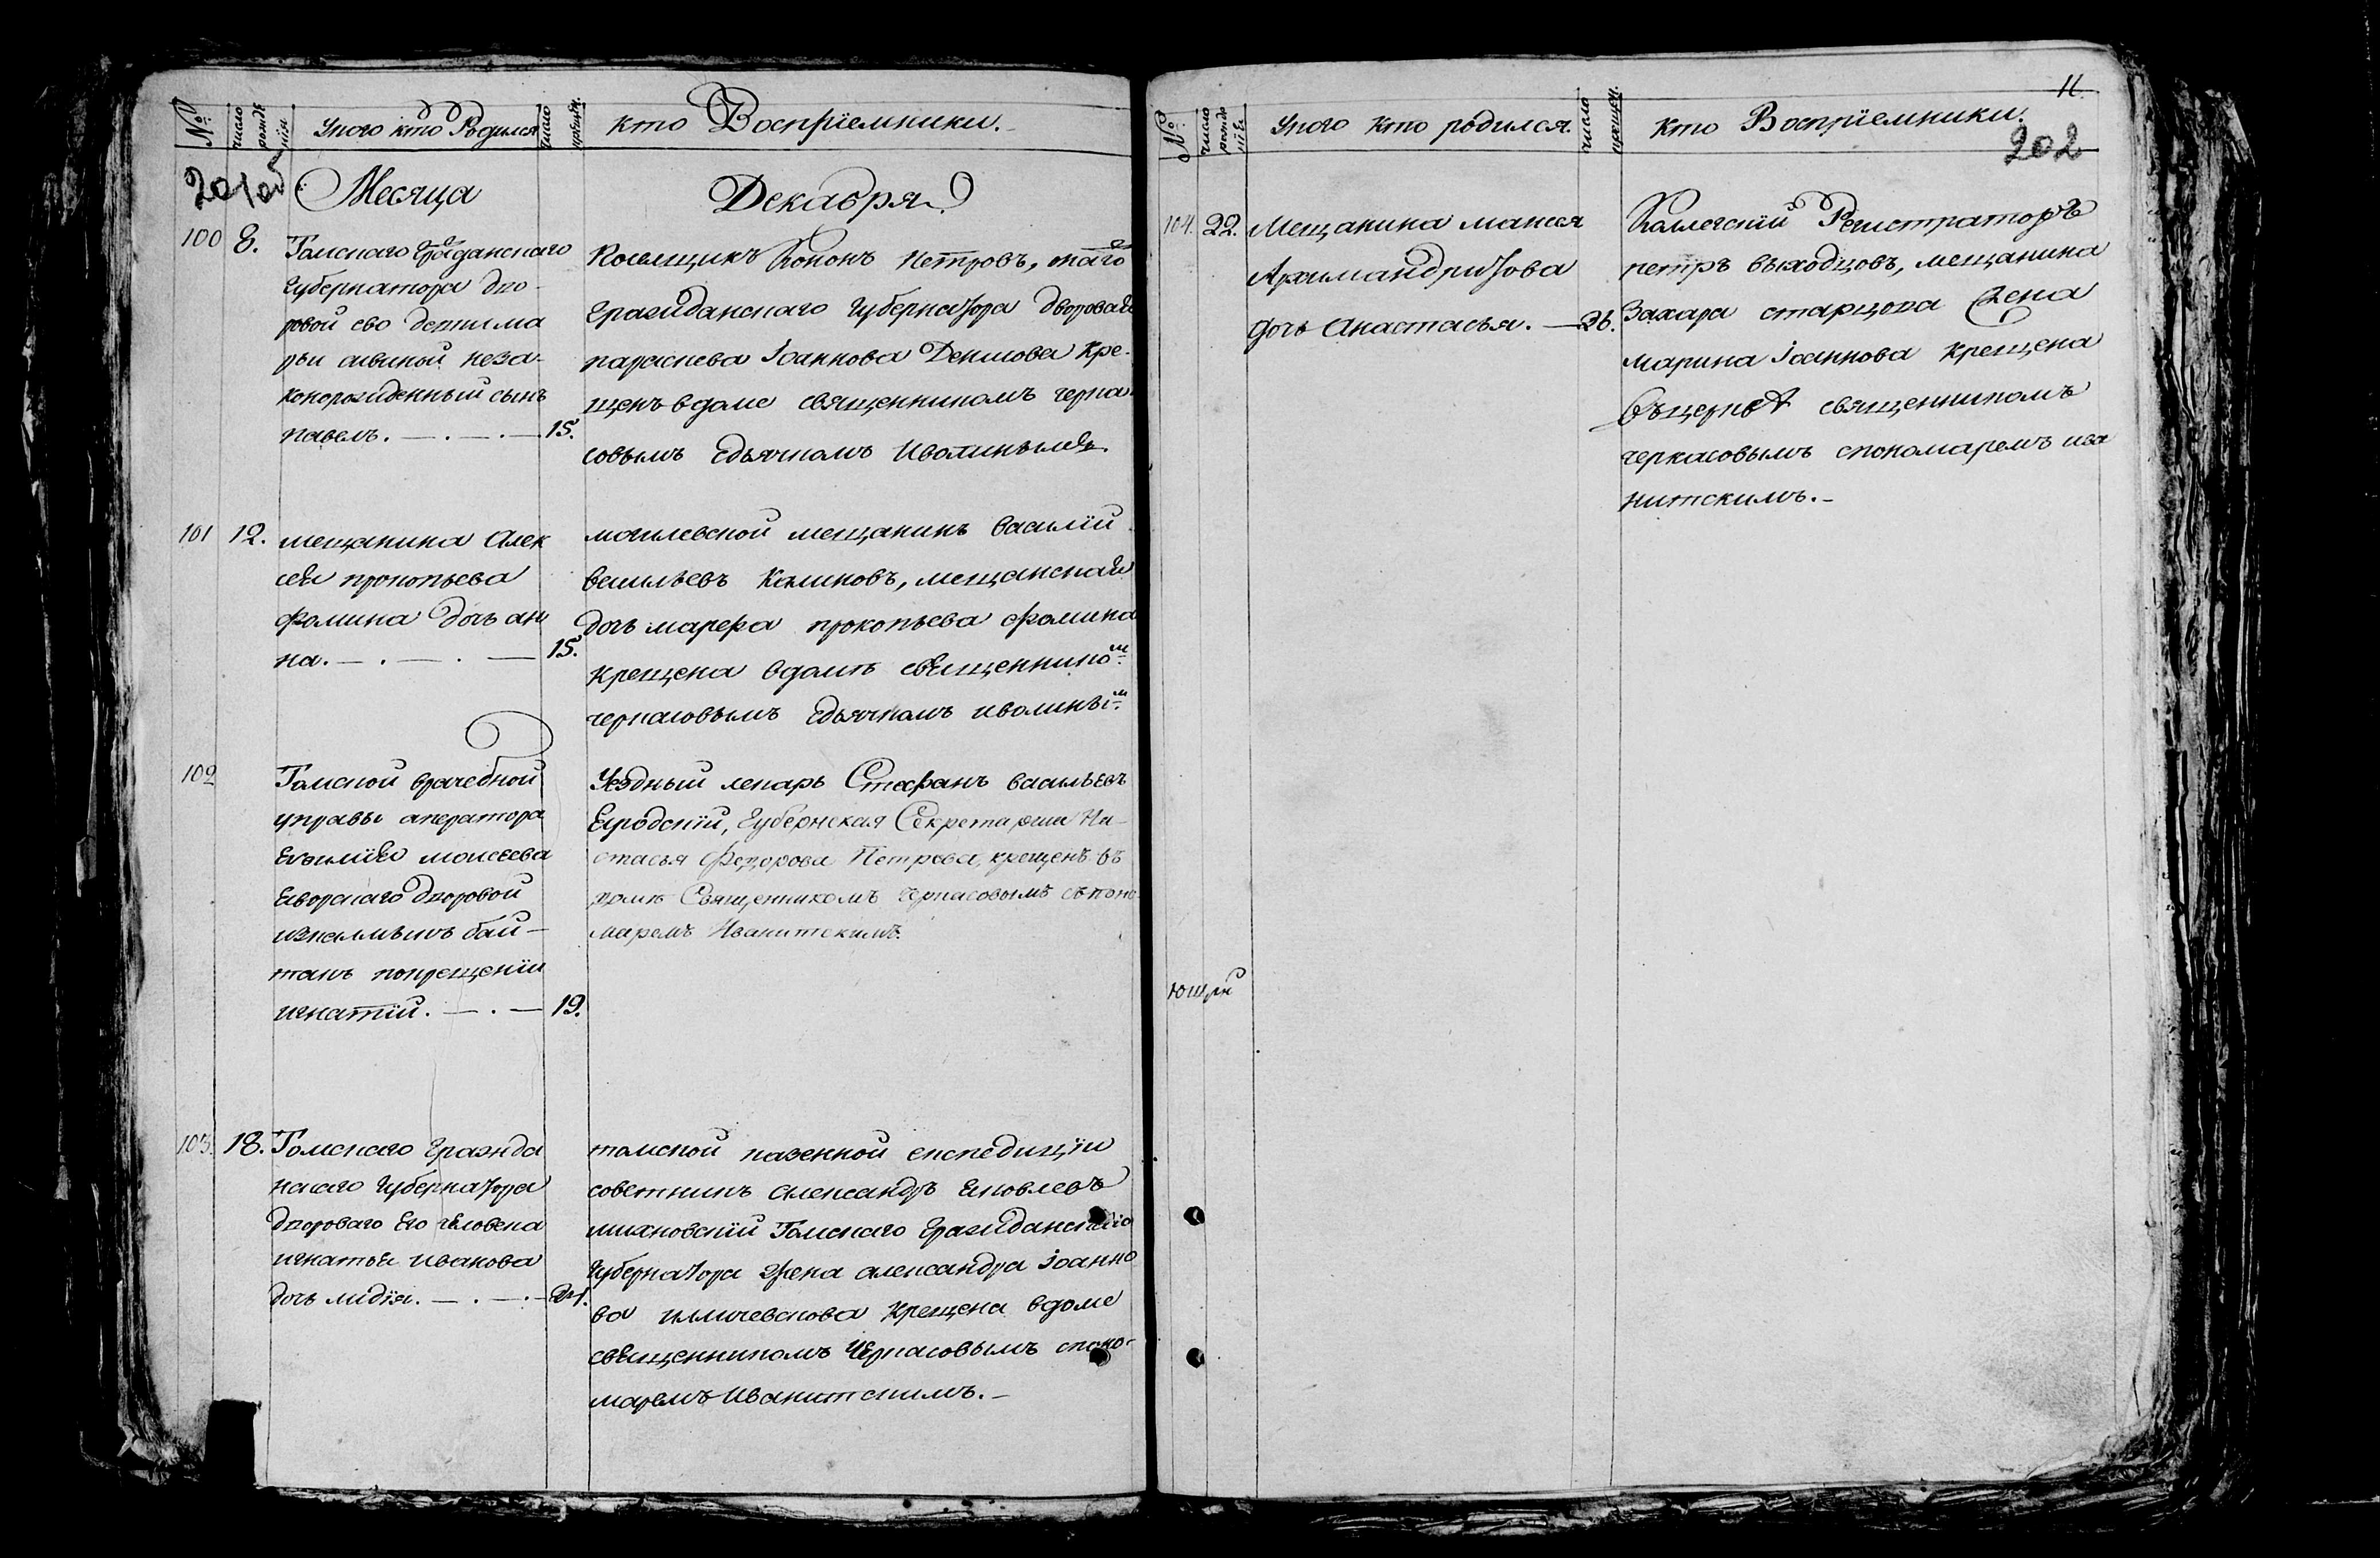 №
число рожденія
У кого кто Родился
число крещен.
кто Воспріемники.
201 об
Месяца Декабря
100 8.
Томскаго гражданскаго
Губернатора дво-
ровой ево
незо-
конорожденный сынъ
павелъ. — . — . — 15.
Кононъ петровъ, тогo
гражданскаго губернатора дворовая
параскева Іоаннова Денисова кре-
щенъ вдоме священникомъ черка
совымъ сдьячкомъ Иволинымъ.
101 12.
мещанина Алек
сея прокопьева
фомина дочь ан
на. — . — . — 15.
могилевской мещанинъ василій
васильевъ Климовъ, мещанская
дочь марфа прокопьева фомина
крещена вдомѣ священником
черкасовымъ сдьячкомъ иволиным
102
Томской врачебной
управы оператора
моисеева
яворскаго дворовой
изкалмыкъ бай-
танъ покрещеніи
игнатій. — . — 19.
Уездный лекарь Стефанъ васильевъ
Губернская Секретарша На-
стасья Федорова Петрова, крещенъ въ
домѣ Священникомъ Черкасовымъ съ поно-
маремъ Иванитскимъ.
103. 18.
Томскаго гражда
нскаго губернатора
двороваго Его человека
игнатья иванова
дочь лидія. — . — . — 21.
томской казенной експедиціи
советникъ александръ яковлевъ
михновскій Томскаго гражданскаго
губернатора жена александра іоанно
ва илличевскова крещена вдоме
священникомъ Черкасовымъ споно-
маремъ Иванитскимъ. —
11.
№
число рожденія
У кого кто родился.
число крещен.
кто Воспріемники.
202
104. 22.
Мещанина моисея
Архимандритова
дочь Анастасья. — 26.
Коллегскій Регистраторъ
петръ выходцовъ, мещанина
Захара старцова жена
марина Іоаннова крещена
въцерквѣ священникомъ
черкасовымъ спономаремъ ива
нитскимъ. —
ющій